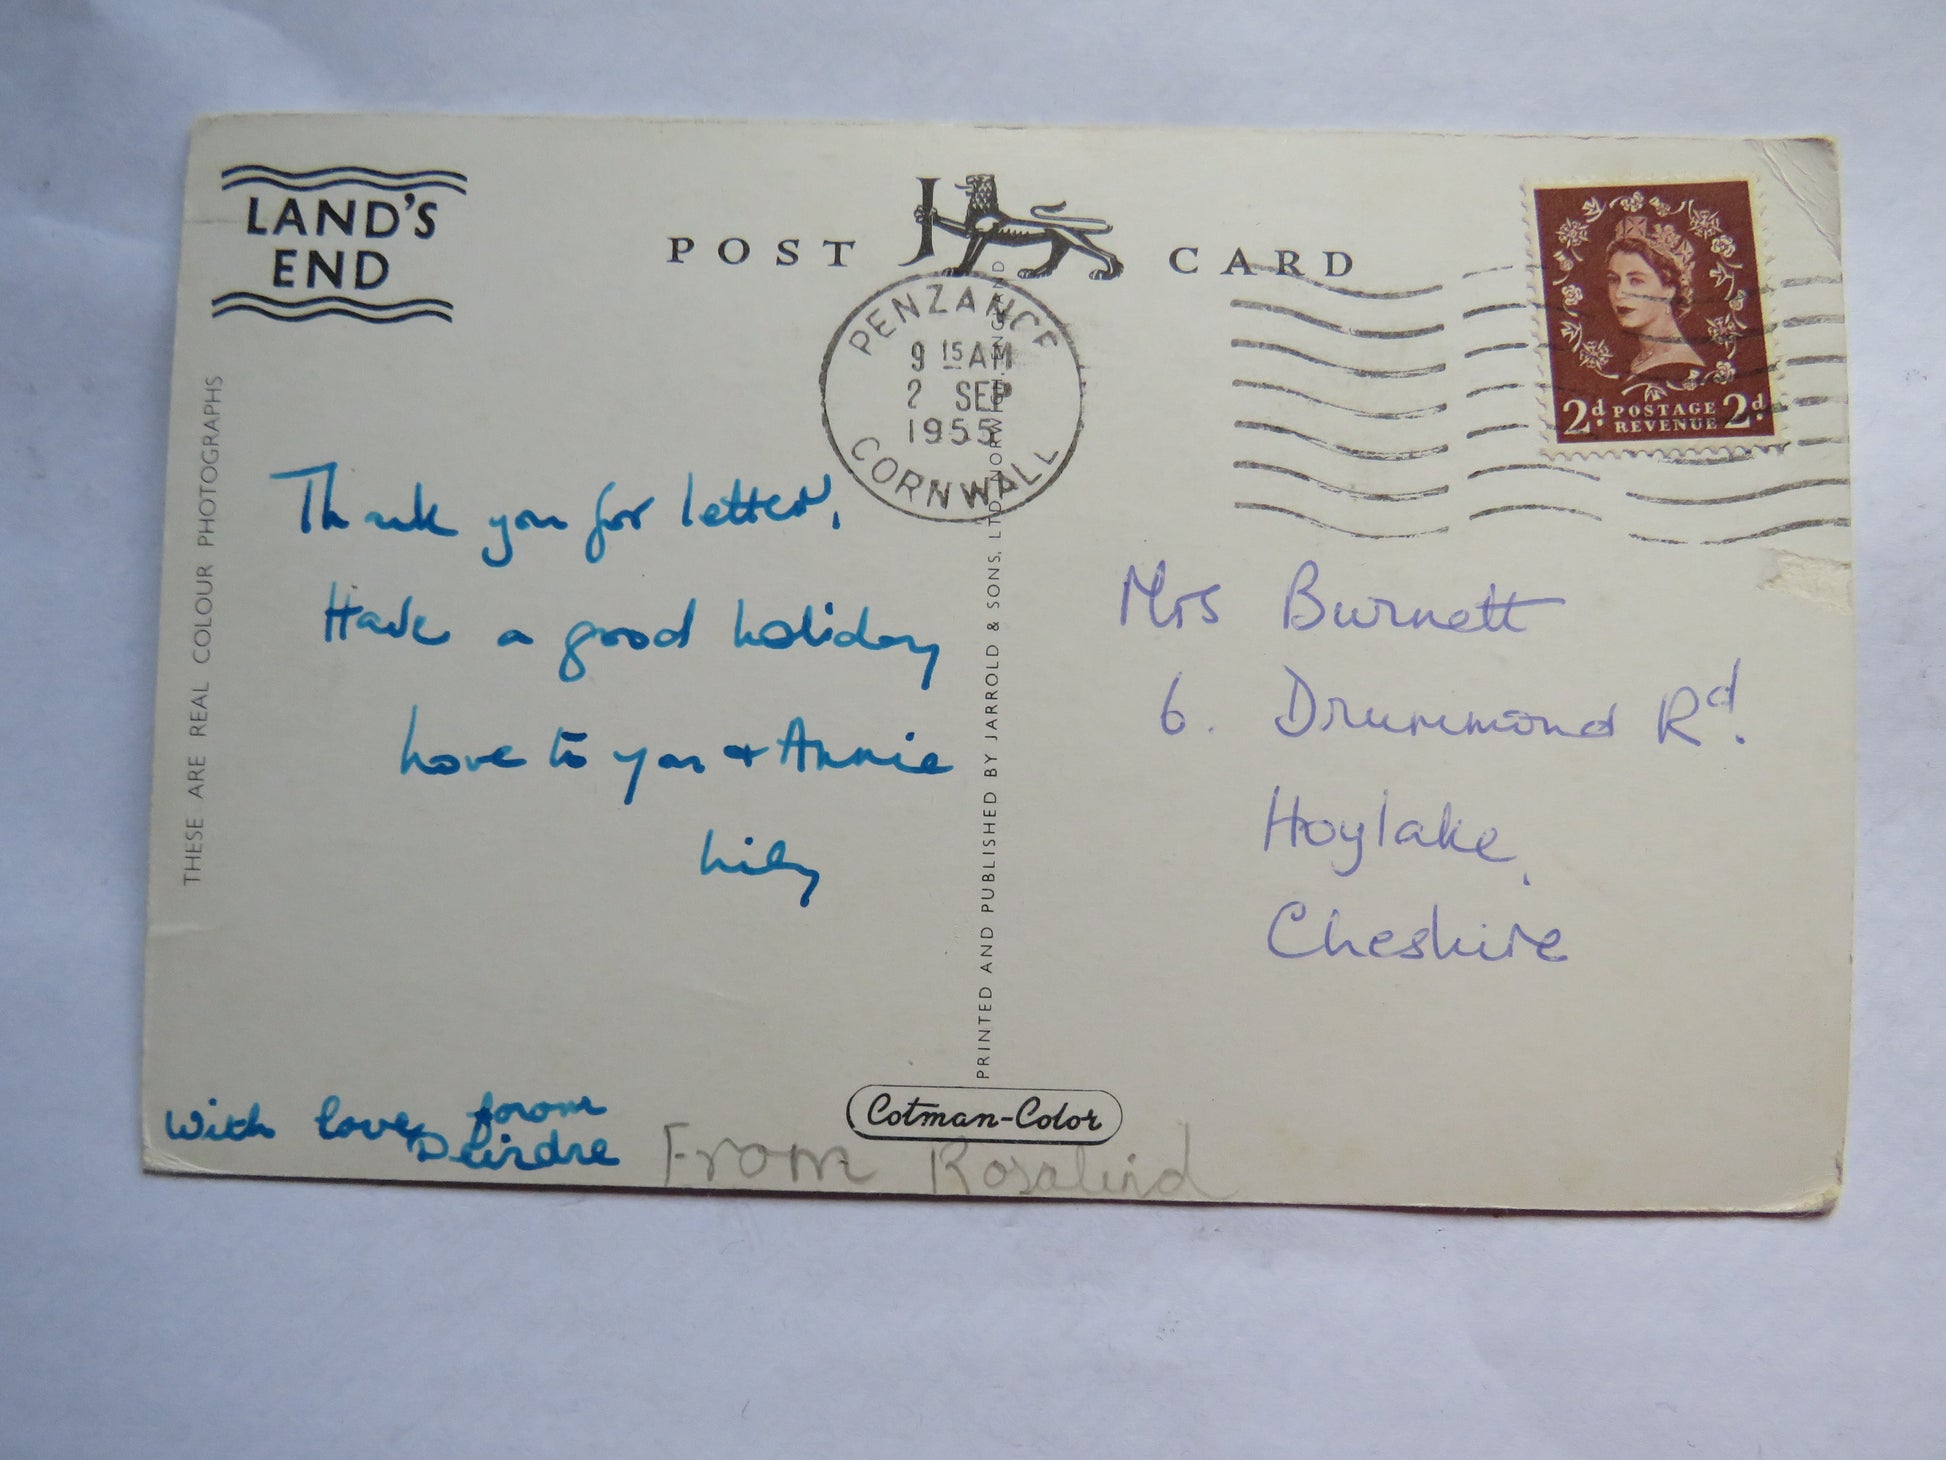 LAND'S
END
POST CARD
PENZANCE
9 15 AM
2 SEP
1955
CORNWALL
2d. POSTAGE 2d.
REVENUE
THESE ARE REAL COLOUR PHOTOGRAPHS
Thank you for letter,
Have a good holiday
Love to you + Annie
Lily
With love from
Deirdre
From Rosalind
PRINTED AND PUBLISHED BY JARROLD & SONS, LTD., NORWICH, ENGLAND
Cotman-Color
Mrs Burnett
6. Drummond Rd.
Hoylake,
Cheshire